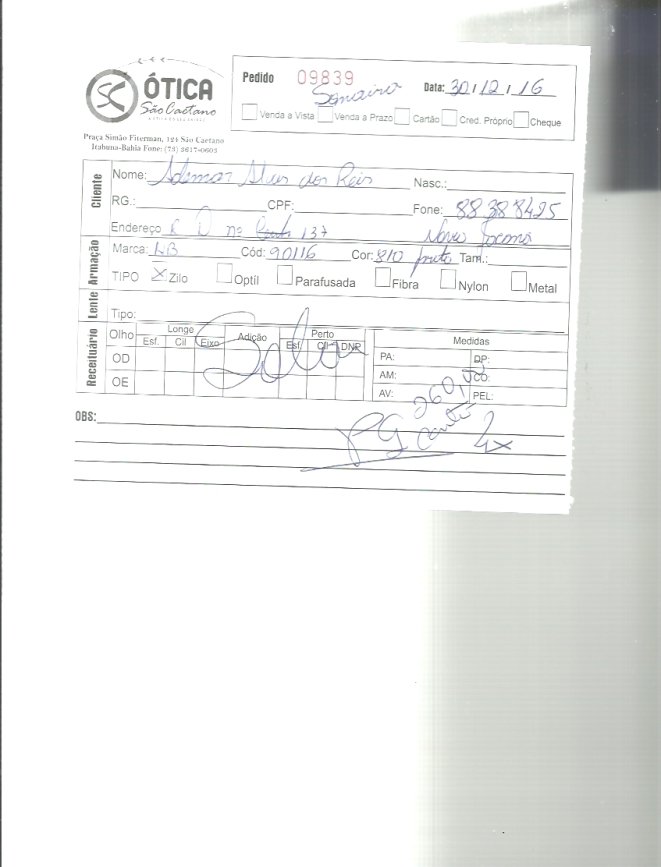 ÓTICA
São Caetano
Praça Simão Fiterman, 124 São Caetano
Itabuna-Bahia Fone: (73) 3617-0603
Pedido 09839
Data: 30/12/16
Venda a Vista Venda a Prazo Cartão Cred. Próprio Cheque
Cliente
Nome: Ademar Alves dos Reis Nasc.:
RG.: CPF: Fone: 88388425
Endereço R D nº 137
Armação
Marca: NB Cód: 90116 Cor: 810 preto Tam.:
TIPO X Zilo Optil Parafusada Fibra Nylon Metal
Lente
Tipo:
Receituário
Olho Longe Adição Perto Medidas
Esf. Cil Eixo Esf. Cil DNP
OD
OE
PA: DP:
AM: CO:
AV: PEL:
Solar
OBS:
PG 260,00
2x